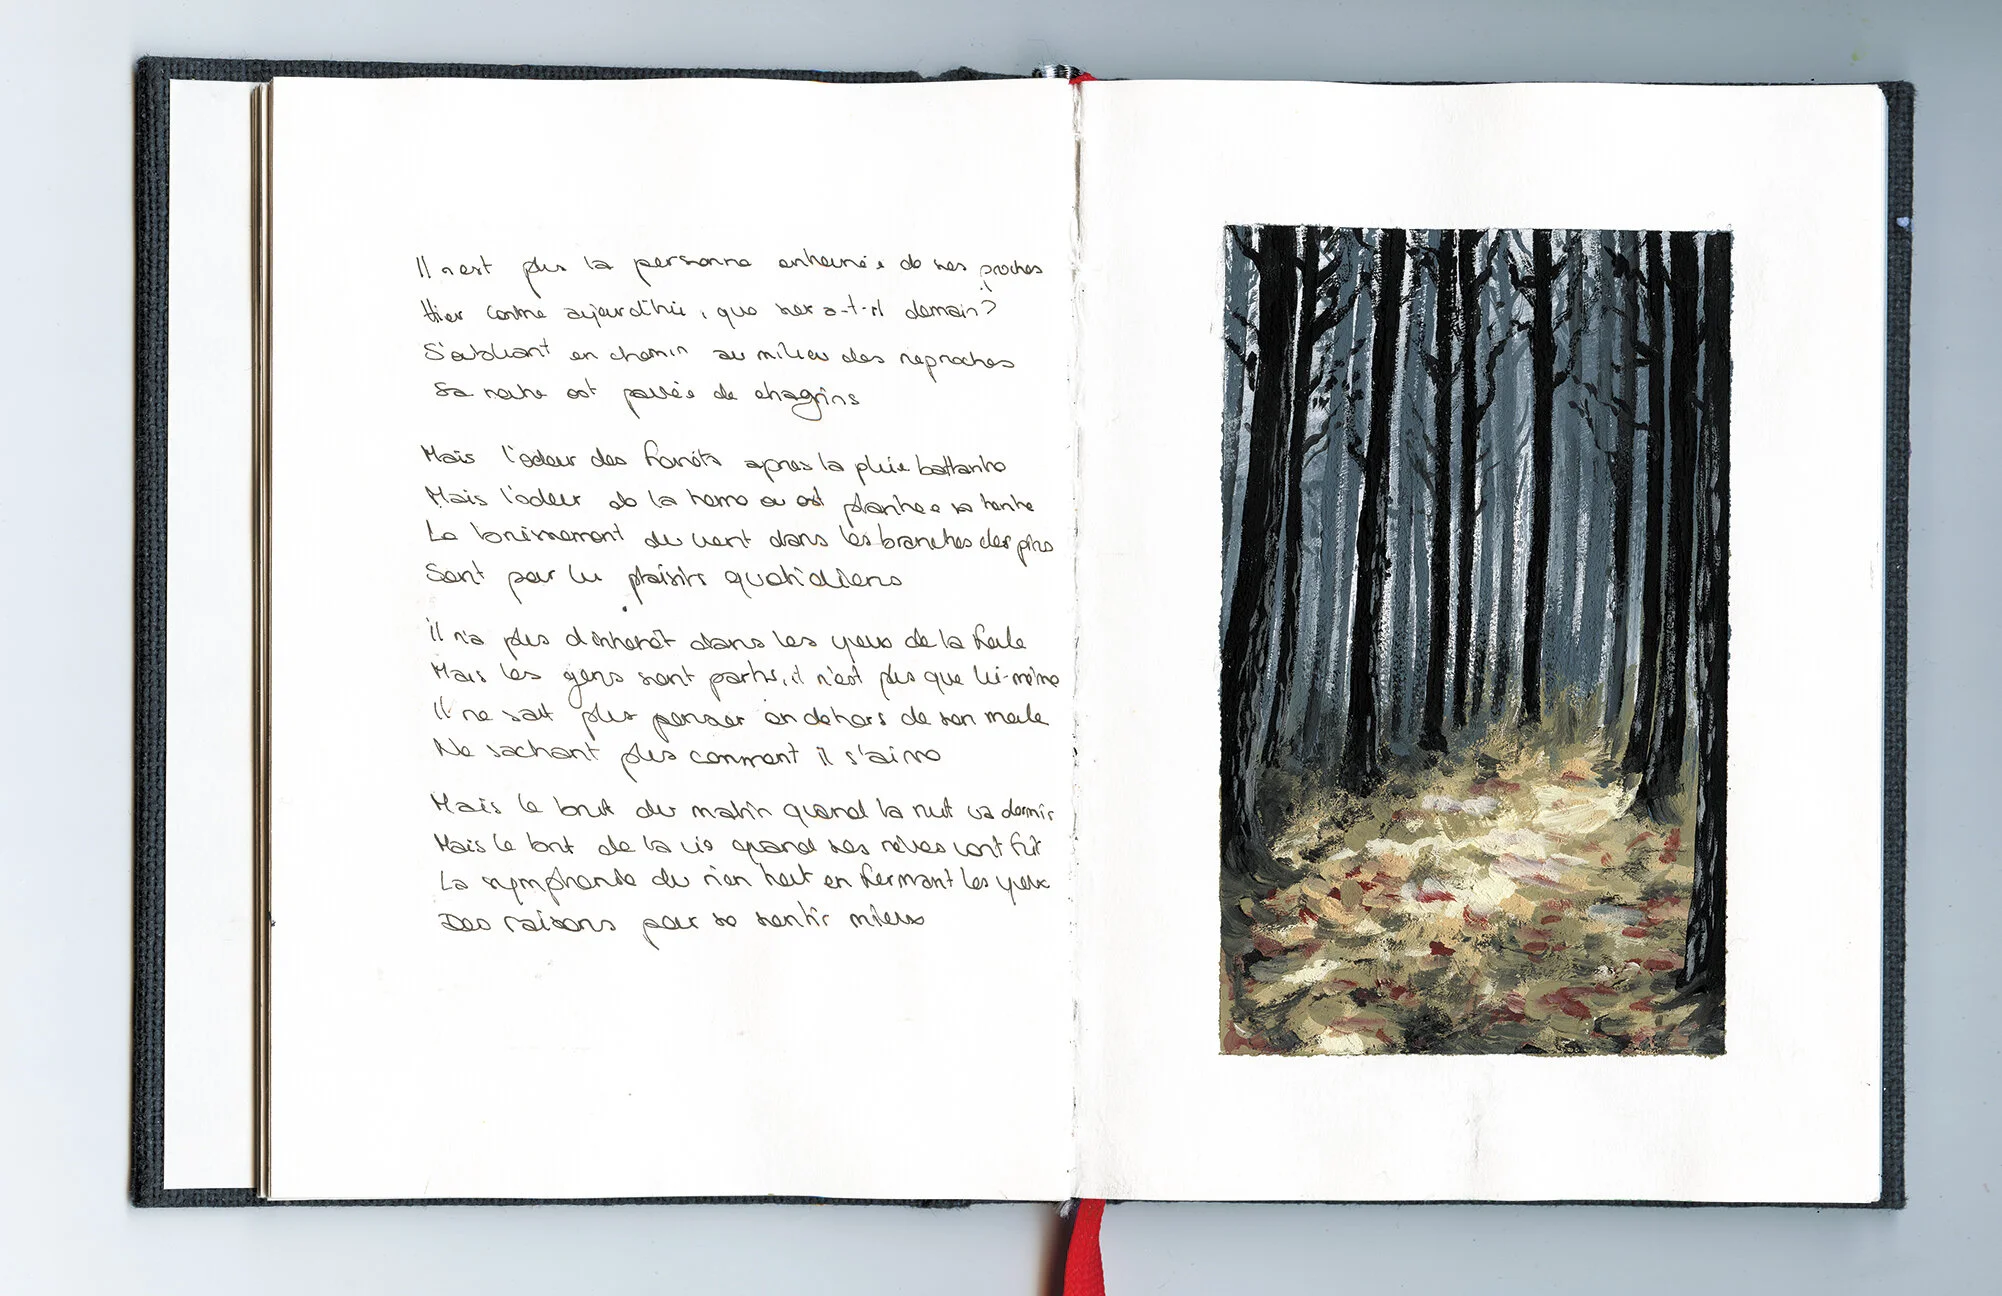 Il n'est plus la personne entourée de ses proches
Hier comme aujourd'hui, que sera-t-il demain?
S'oubliant en chemin au milieu des reproches
Sa route est pavée de chagrins
Mais l'odeur des forêts apres la pluie battante
Mais l'odeur de la terre ou est plantée sa tente
Le bruissement du vent dans les branches des pins
Sont pour lui plaisirs quotidiens
Il n'a plus d'interêt dans les yeux de la foule
Mais les gens sont partis, il n'est plus que lui-même
Il ne sait plus penser en dehors de son moule
Ne sachant plus comment il s'aime
Mais le bruit du matin quand la nuit va dormir
Mais le bruit de la vie quand ses rêves vont fuir
La symphonie du rien tout en fermant les yeux
Des raisons pour se sentir mieux